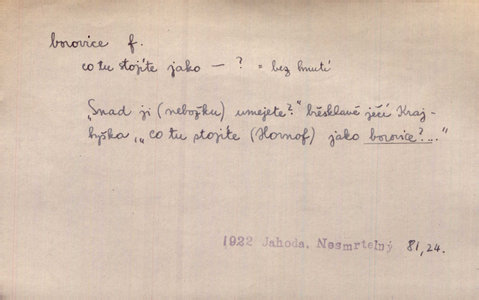 borovice f.
co tu stojíte jako — ? = bez hnutí
„Snad ji (nebožku) umejete?" břesklavě ječí Kraj-
hyška „„co tu stojíte (Hornof) jako borovice?..."
1922 Jahoda, Nesmrtelný 81,24.